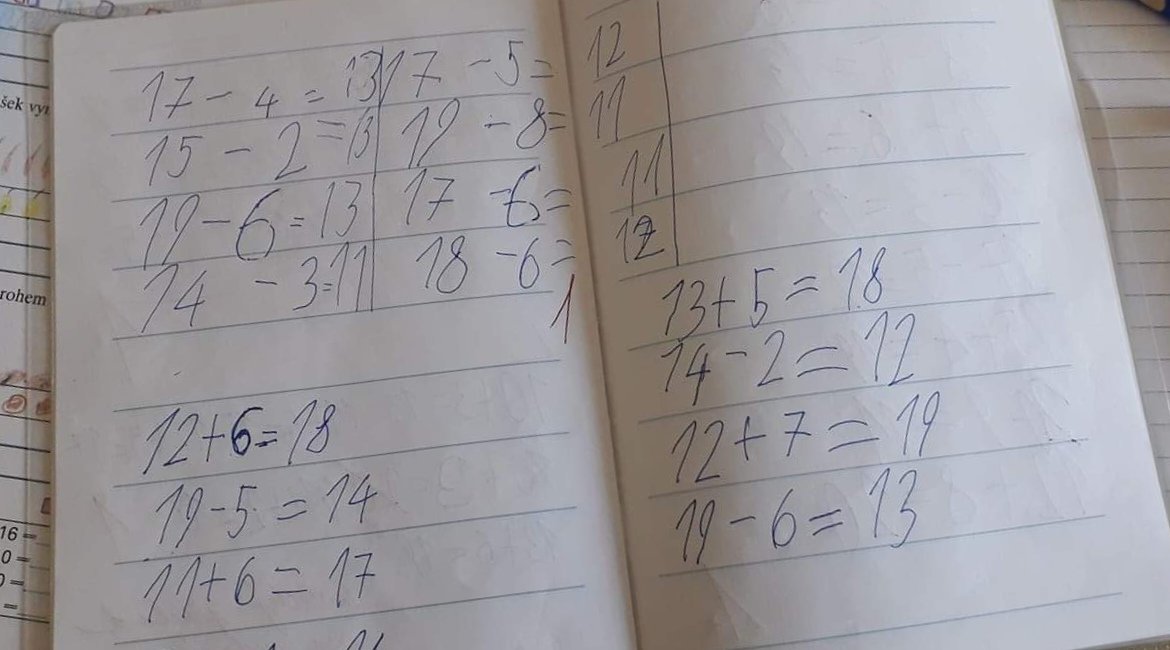 šek vyr
17 - 4 = 13 17 - 5 = 12
15 - 2 = 13 19 - 8 = 11
19 - 6 = 13 17 - 6 = 11
14 - 3 = 11 18 - 6 = 12
1
rohem
12 + 6 = 18
19 - 5 = 14
11 + 6 = 17
16 =
0 =
0 =
=
13 + 5 = 18
14 - 2 = 12
12 + 7 = 19
19 - 6 = 13